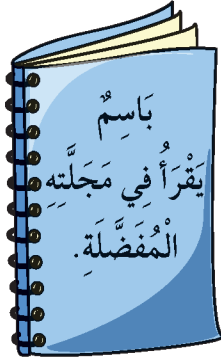 بَاسِمٌ
يَقْرَأُ فِي مَجَلَّتِهِ
الْمُفَضَّلَةِ.